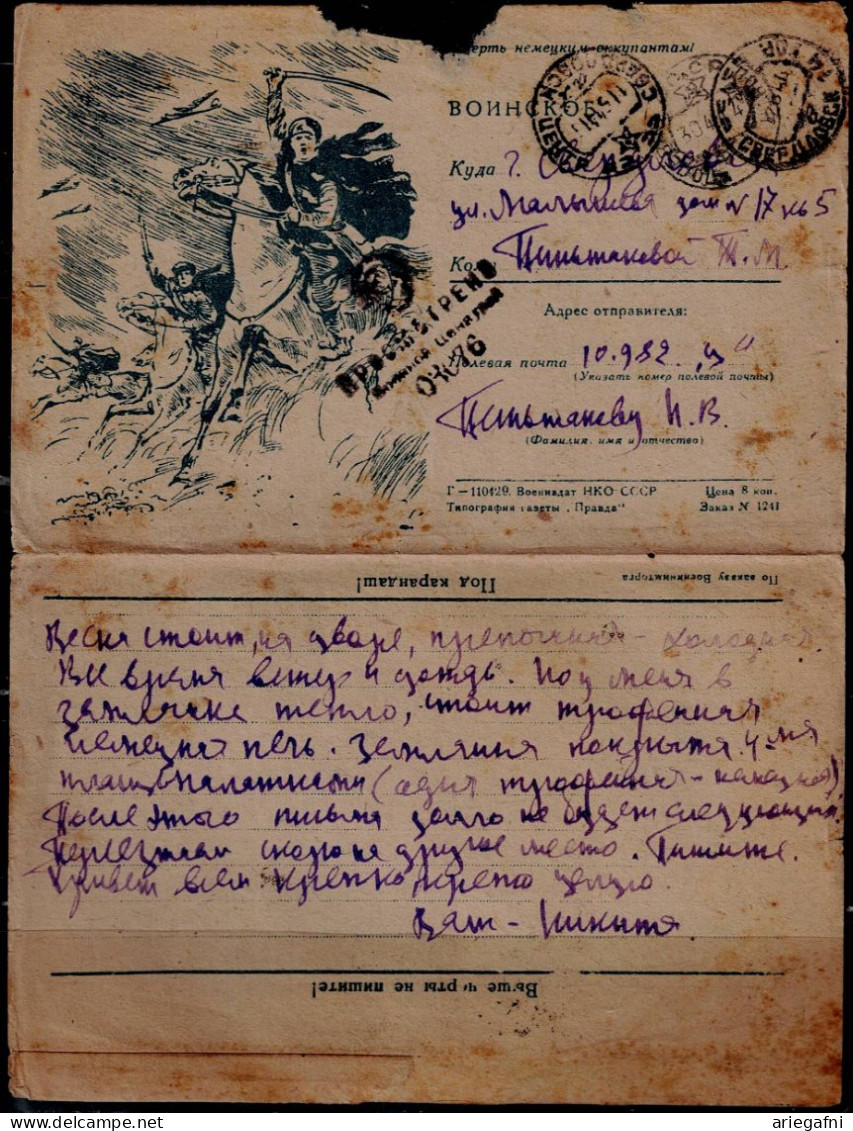 Смерть немецким оккупантам!
ВОИНСКОЕ
СВЕРДЛОВСК
СВЕРДЛОВСК
Куда г.
ул. Малышева дом N 17 кв 5
Пиньжаковой Т. М.
Адрес отправителя:
ПРОСМОТРЕНО
Военной Цензурой
04676
Полевая почта 10.982 "ц"
(Указать номер полевой почты)
И. В.
(Фамилия, имя и отчество)
Г—110429. Воениздат НКО СССР Цена 8 коп.
Типография газеты „Правда“ Заказ N 1241
По заказу Военкниготорга
Под карандаш!
Весна стоит, на дворе, - холодная.
Все время ветер и дождь. Но у меня в
землянке тепло, стоит трофейная
немецкая печь. Землянка покрыта 4-мя
плащпалатками (одна трофейная - )
После этого письма долго не будет следующий.
Переезжаем скоро на другое место. Пишите.
Привет всем Крепко крепко целую.
Ваш - Никита
Выше черты не пишите!
ariegafni